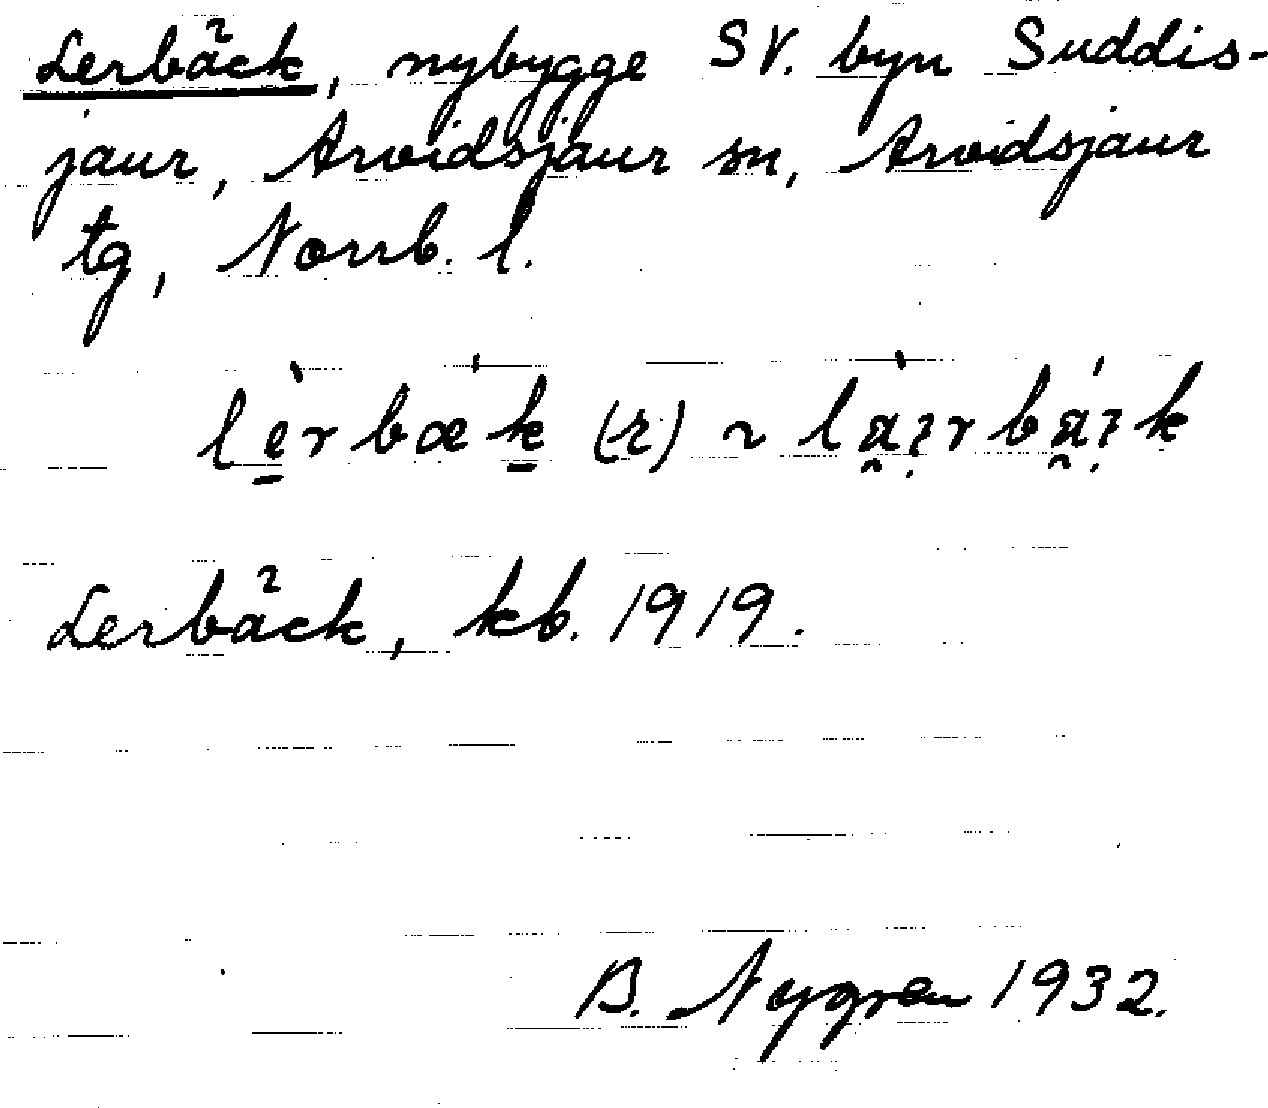 Lerbäck, nybygge SV. byn Suddis-
jaur, Arvidsjaur sn, Arvidsjaur
tg, Norrb. l.
Lerbäck, kb. 1919.
B. Nygren 1932.